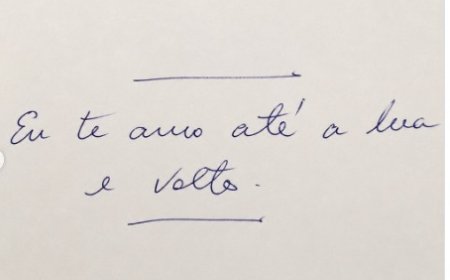 Eu te amo até a lua
e volto.